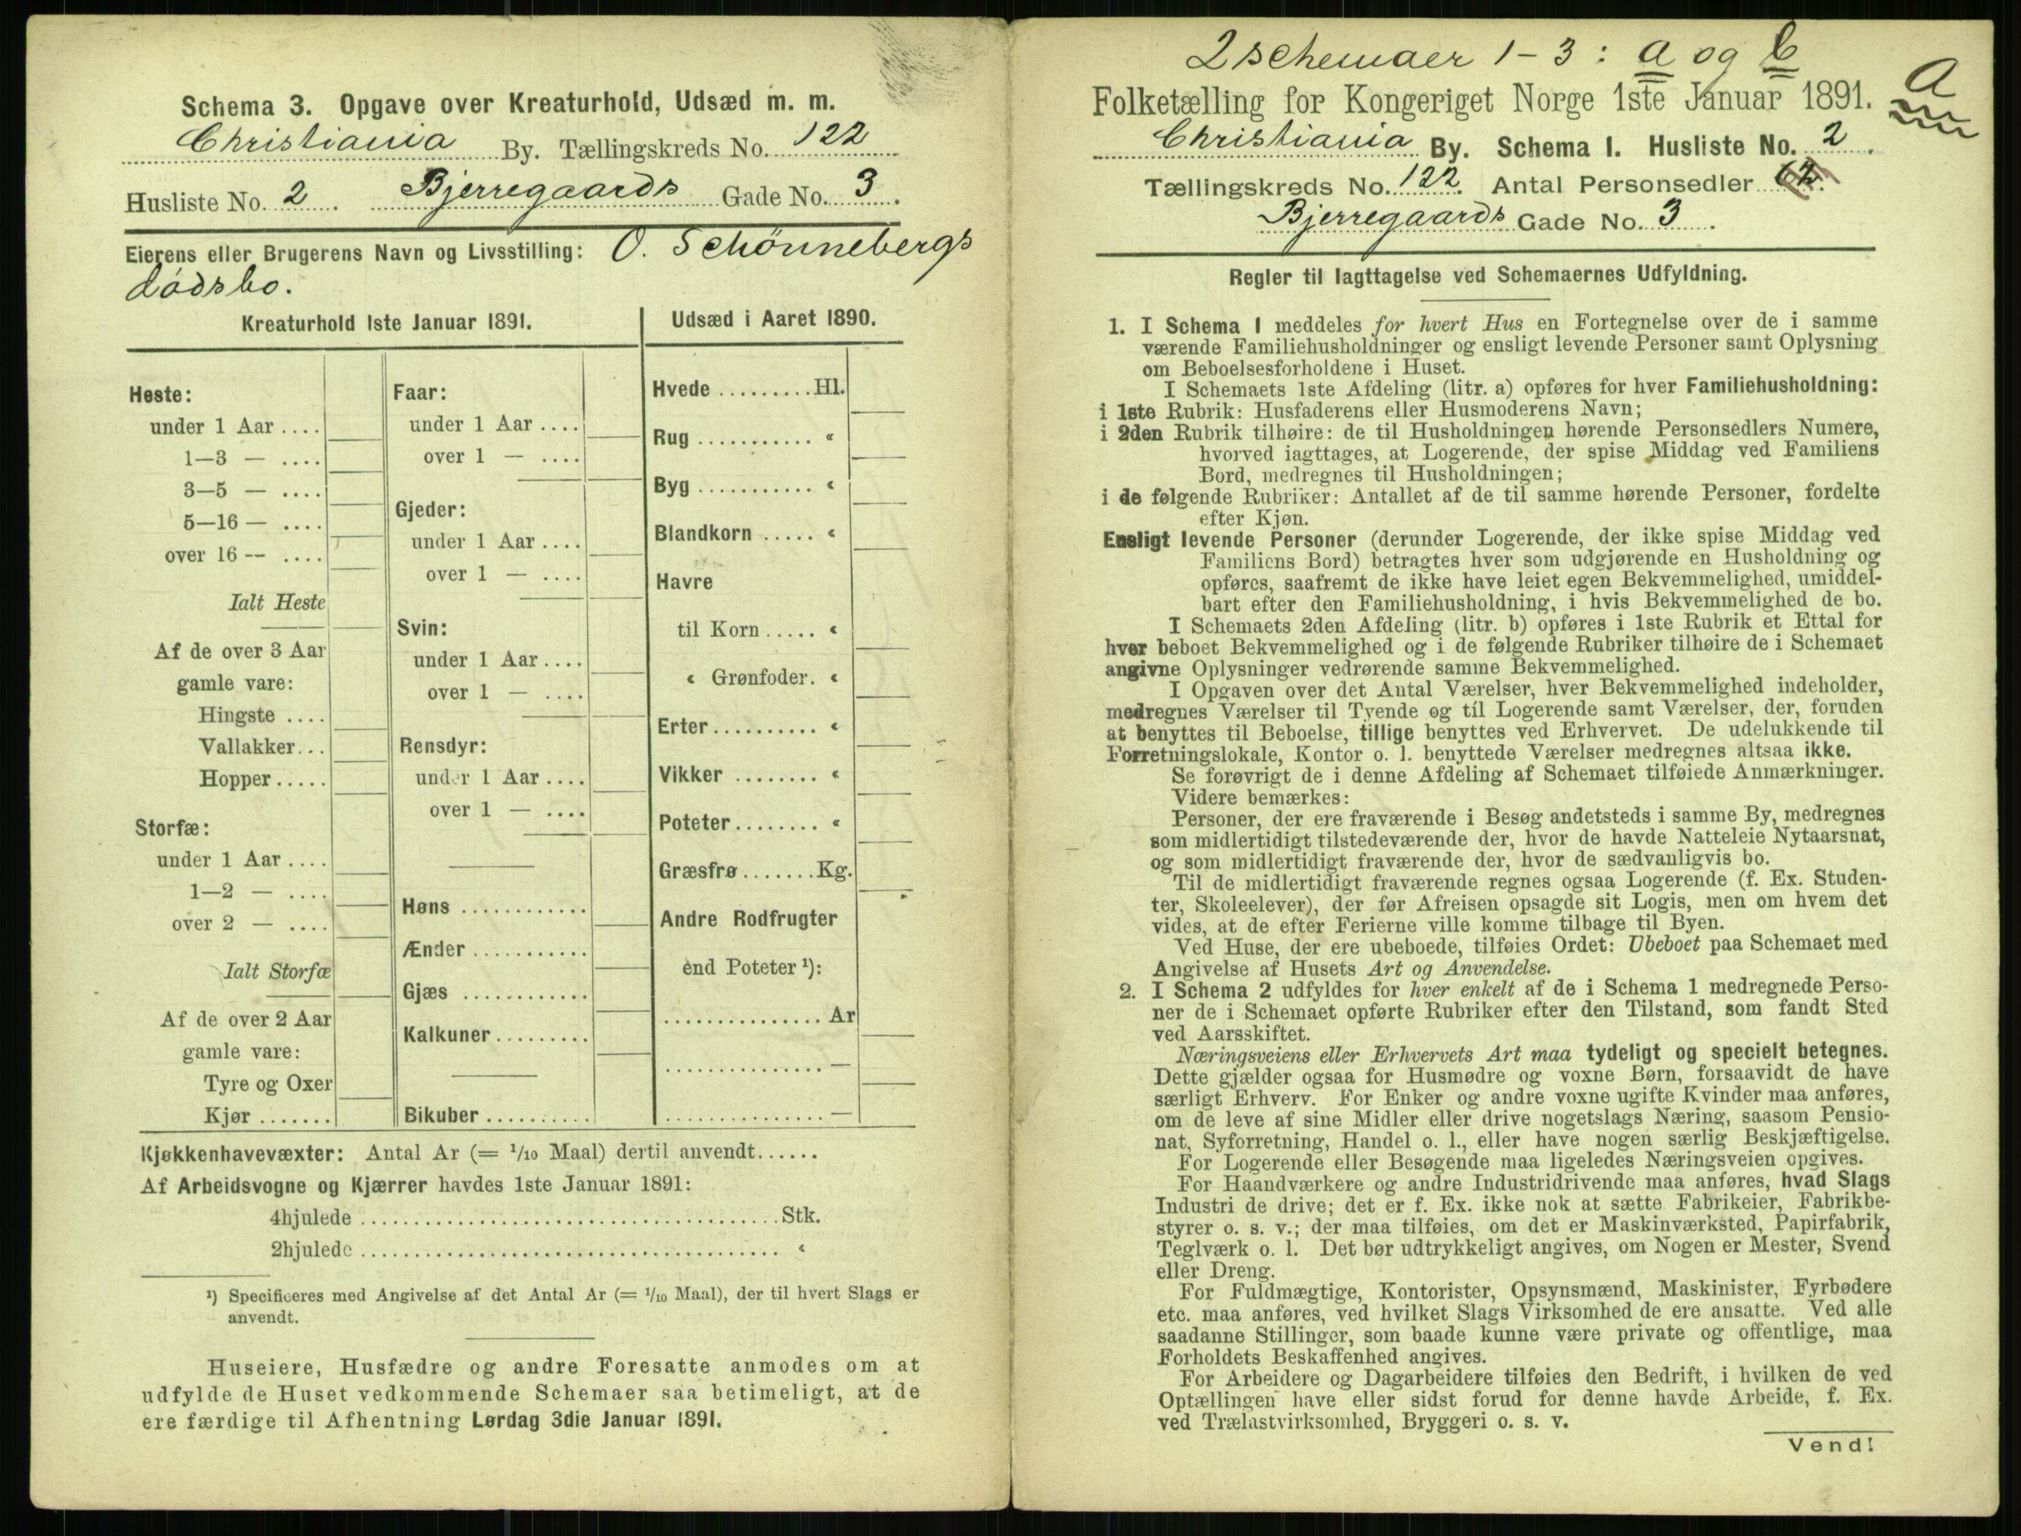 Schema 3. Opgave over Kreaturhold, Udsæd m. m.
Christiania By. Tællingskreds No. 122
Husliste No. 2. Bjerregaards Gade No. 3.
Eierens eller Brugerens Navn og Livsstilling: O. Schønnebergs
dødsbo.
Kreaturhold 1ste Januar 1891.
Heste:
under 1 Aar ....
1—3 — ....
3—5 — ....
5—16 — ....
over 16 — ....
Ialt Heste
Af de over 3 Aar
gamle vare:
Hingste ....
Vallakker...
Hopper.....
Storfæ:
under 1 Aar ....
1—2 — ....
over 2 — ....
Ialt Storfæ
Af de over 2 Aar
gamle vare:
Tyre og Oxer
Kjør .......
Faar:
under 1 Aar ....
over 1 — ....
Gjeder:
under 1 Aar ....
over 1 — ....
Svin:
under 1 Aar ....
over 1 — ....
Rensdyr:
under 1 Aar ....
over 1 — ....
Høns ............
Ænder ...........
Gjæs ............
Kalkuner.........
Bikuber ..........
Udsæd i Aaret 1890.
Hvede .........Hl.
Rug ........... «
Byg ........... «
Blandkorn ..... «
Havre
til Korn..... «
« Grønfoder. «
Erter.......... «
Vikker ........ «
Poteter........ «
Græsfrø.......Kg.
Andre Rodfrugter
end Poteter ¹):
............... Ar
............... —
............... —
Kjøkkenhavevæxter: Antal Ar (= 1/10 Maal) dertil anvendt......
Af Arbeidsvogne og Kjærrer havdes 1ste Januar 1891:
4hjulede .......................................Stk.
2hjulede ....................................... «
¹) Specificeres med Angivelse af det Antal Ar (= 1/10 Maal), der til hvert Slags er
anvendt.
Huseiere, Husfædre og andre Foresatte anmodes om at
udfylde de Huset vedkommende Schemaer saa betimeligt, at de
ere færdige til Afhentning Lørdag 3die Januar 1891.
2 schemaer 1-3 : a og b
A
Folketælling for Kongeriget Norge 1ste Januar 1891.
Christiania By. Schema I. Husliste No. 2.
Tællingskreds No. 122. Antal Personsedler
Bjerregaards Gade No. 3.
Regler til Iagttagelse ved Schemaernes Udfyldning.
1. I Schema I meddeles for hvert Hus en Fortegnelse over de i samme
værende Familiehusholdninger og ensligt levende Personer samt Oplysning
om Beboelsesforholdene i Huset.
I Schemaets 1ste Afdeling (litr. a) opføres for hver Familiehusholdning:
i 1ste Rubrik: Husfaderens eller Husmoderens Navn;
i 2den Rubrik tilhøire: de til Husholdningen hørende Personsedlers Numere,
hvorved iagttages, at Logerende, der spise Middag ved Familiens
Bord, medregnes til Husholdningen;
i de følgende Rubriker: Antallet af de til samme hørende Personer, fordelte
efter Kjøn.
Ensligt levende Personer (derunder Logerende, der ikke spise Middag ved
Familiens Bord) betragtes hver som udgjørende en Husholdning og
opføres, saafremt de ikke have leiet egen Bekvemmelighed, umiddel-
bart efter den Familiehusholdning, i hvis Bekvemmelighed de bo.
I Schemaets 2den Afdeling (litr. b) opføres i 1ste Rubrik et Ettal for
hver beboet Bekvemmelighed og i de følgende Rubriker tilhøire de i Schemaet
angivne Oplysninger vedrørende samme Bekvemmelighed.
I Opgaven over det Antal Værelser, hver Bekvemmelighed indeholder,
medregnes Værelser til Tyende og til Logerende samt Værelser, der, foruden
at benyttes til Beboelse, tillige benyttes ved Erhvervet. De udelukkende til
Forretningslokale, Kontor o. l. benyttede Værelser medregnes altsaa ikke.
Se forøvrigt de i denne Afdeling af Schemaet tilføiede Anmærkninger.
Videre bemærkes:
Personer, der ere fraværende i Besøg andetsteds i samme By, medregnes
som midlertidigt tilstedeværende der, hvor de havde Natteleie Nytaarsnat,
og som midlertidigt fraværende der, hvor de sædvanligvis bo.
Til de midlertidigt fraværende regnes ogsaa Logerende (f. Ex. Studen-
ter, Skoleelever), der før Afreisen opsagde sit Logis, men om hvem det
vides, at de efter Ferierne ville komme tilbage til Byen.
Ved Huse, der ere ubeboede, tilføies Ordet: Ubeboet paa Schemaet med
Angivelse af Husets Art og Anvendelse.
2. I Schema 2 udfyldes for hver enkelt af de i Schema 1 medregnede Perso-
ner de i Schemaet opførte Rubriker efter den Tilstand, som fandt Sted
ved Aarsskiftet.
Næringsveiens eller Erhvervets Art maa tydeligt og specielt betegnes.
Dette gjælder ogsaa for Husmødre og voxne Børn, forsaavidt de have
særligt Erhverv. For Enker og andre voxne ugifte Kvinder maa anføres,
om de leve af sine Midler eller drive nogetslags Næring, saasom Pensio-
nat, Syforretning, Handel o. l., eller have nogen særlig Beskjæftigelse.
For Logerende eller Besøgende maa ligeledes Næringsveien opgives.
For Haandværkere og andre Industridrivende maa anføres, hvad Slags
Industri de drive; det er f. Ex. ikke nok at sætte Fabrikeier, Fabrikbe-
styrer o. s. v.; der maa tilføies, om det er Maskinværksted, Papirfabrik,
Teglværk o. l. Det bør udtrykkeligt angives, om Nogen er Mester, Svend
eller Dreng.
For Fuldmægtige, Kontorister, Opsynsmænd, Maskinister, Fyrbødere
etc. maa anføres, ved hvilket Slags Virksomhed de ere ansatte. Ved alle
saadanne Stillinger, som baade kunne være private og offentlige, maa
Forholdets Beskaffenhed angives.
For Arbeidere og Dagarbeidere tilføies den Bedrift, i hvilken de ved
Optællingen have eller sidst forud for denne havde Arbeide, f. Ex.
ved Trælastvirksomhed, Bryggeri o. s. v.
Vend!